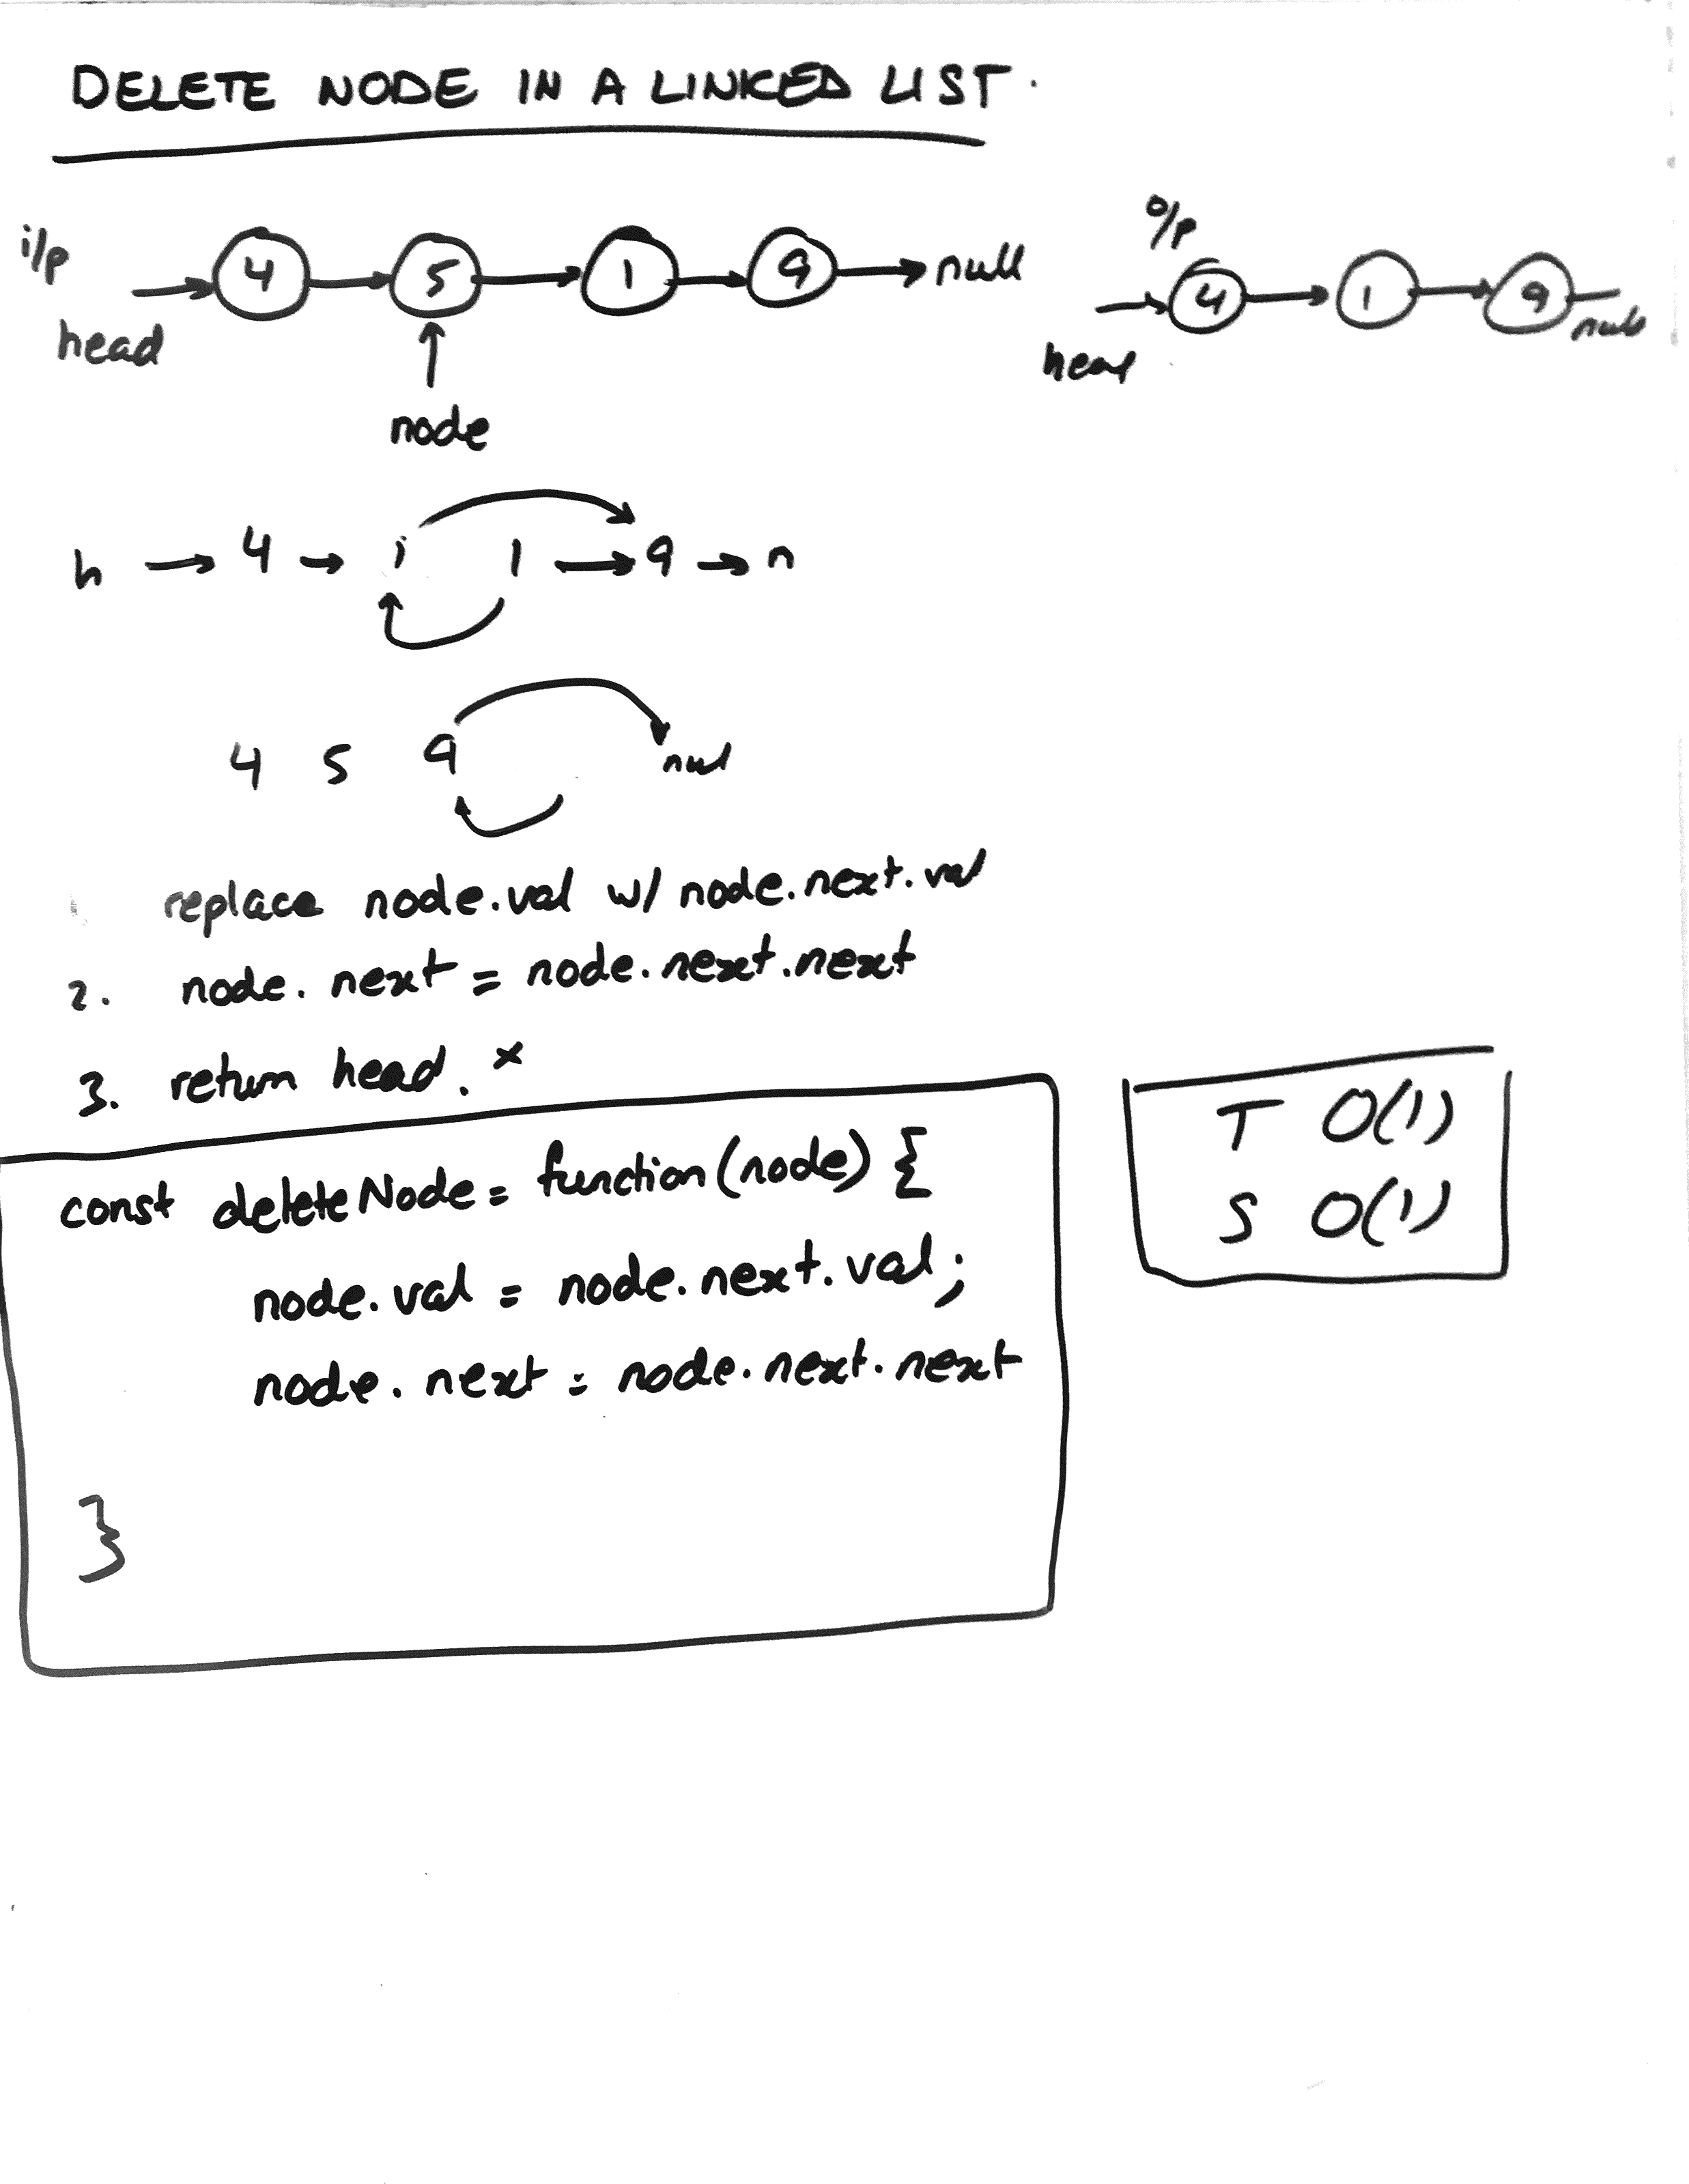 DELETE NODE IN A LINKED LIST.
i/p 4 5 1 9 null
o/p 4 1 9 null
head
head
node
h 4 1 1 9 n
4 5 9 null
replace node.val w/ node.next.val
2. node.next = node.next.next
3. return head. x
const deleteNode = function(node) {
node.val = node.next.val;
node.next = node.next.next
}
T O(1)
S O(1)